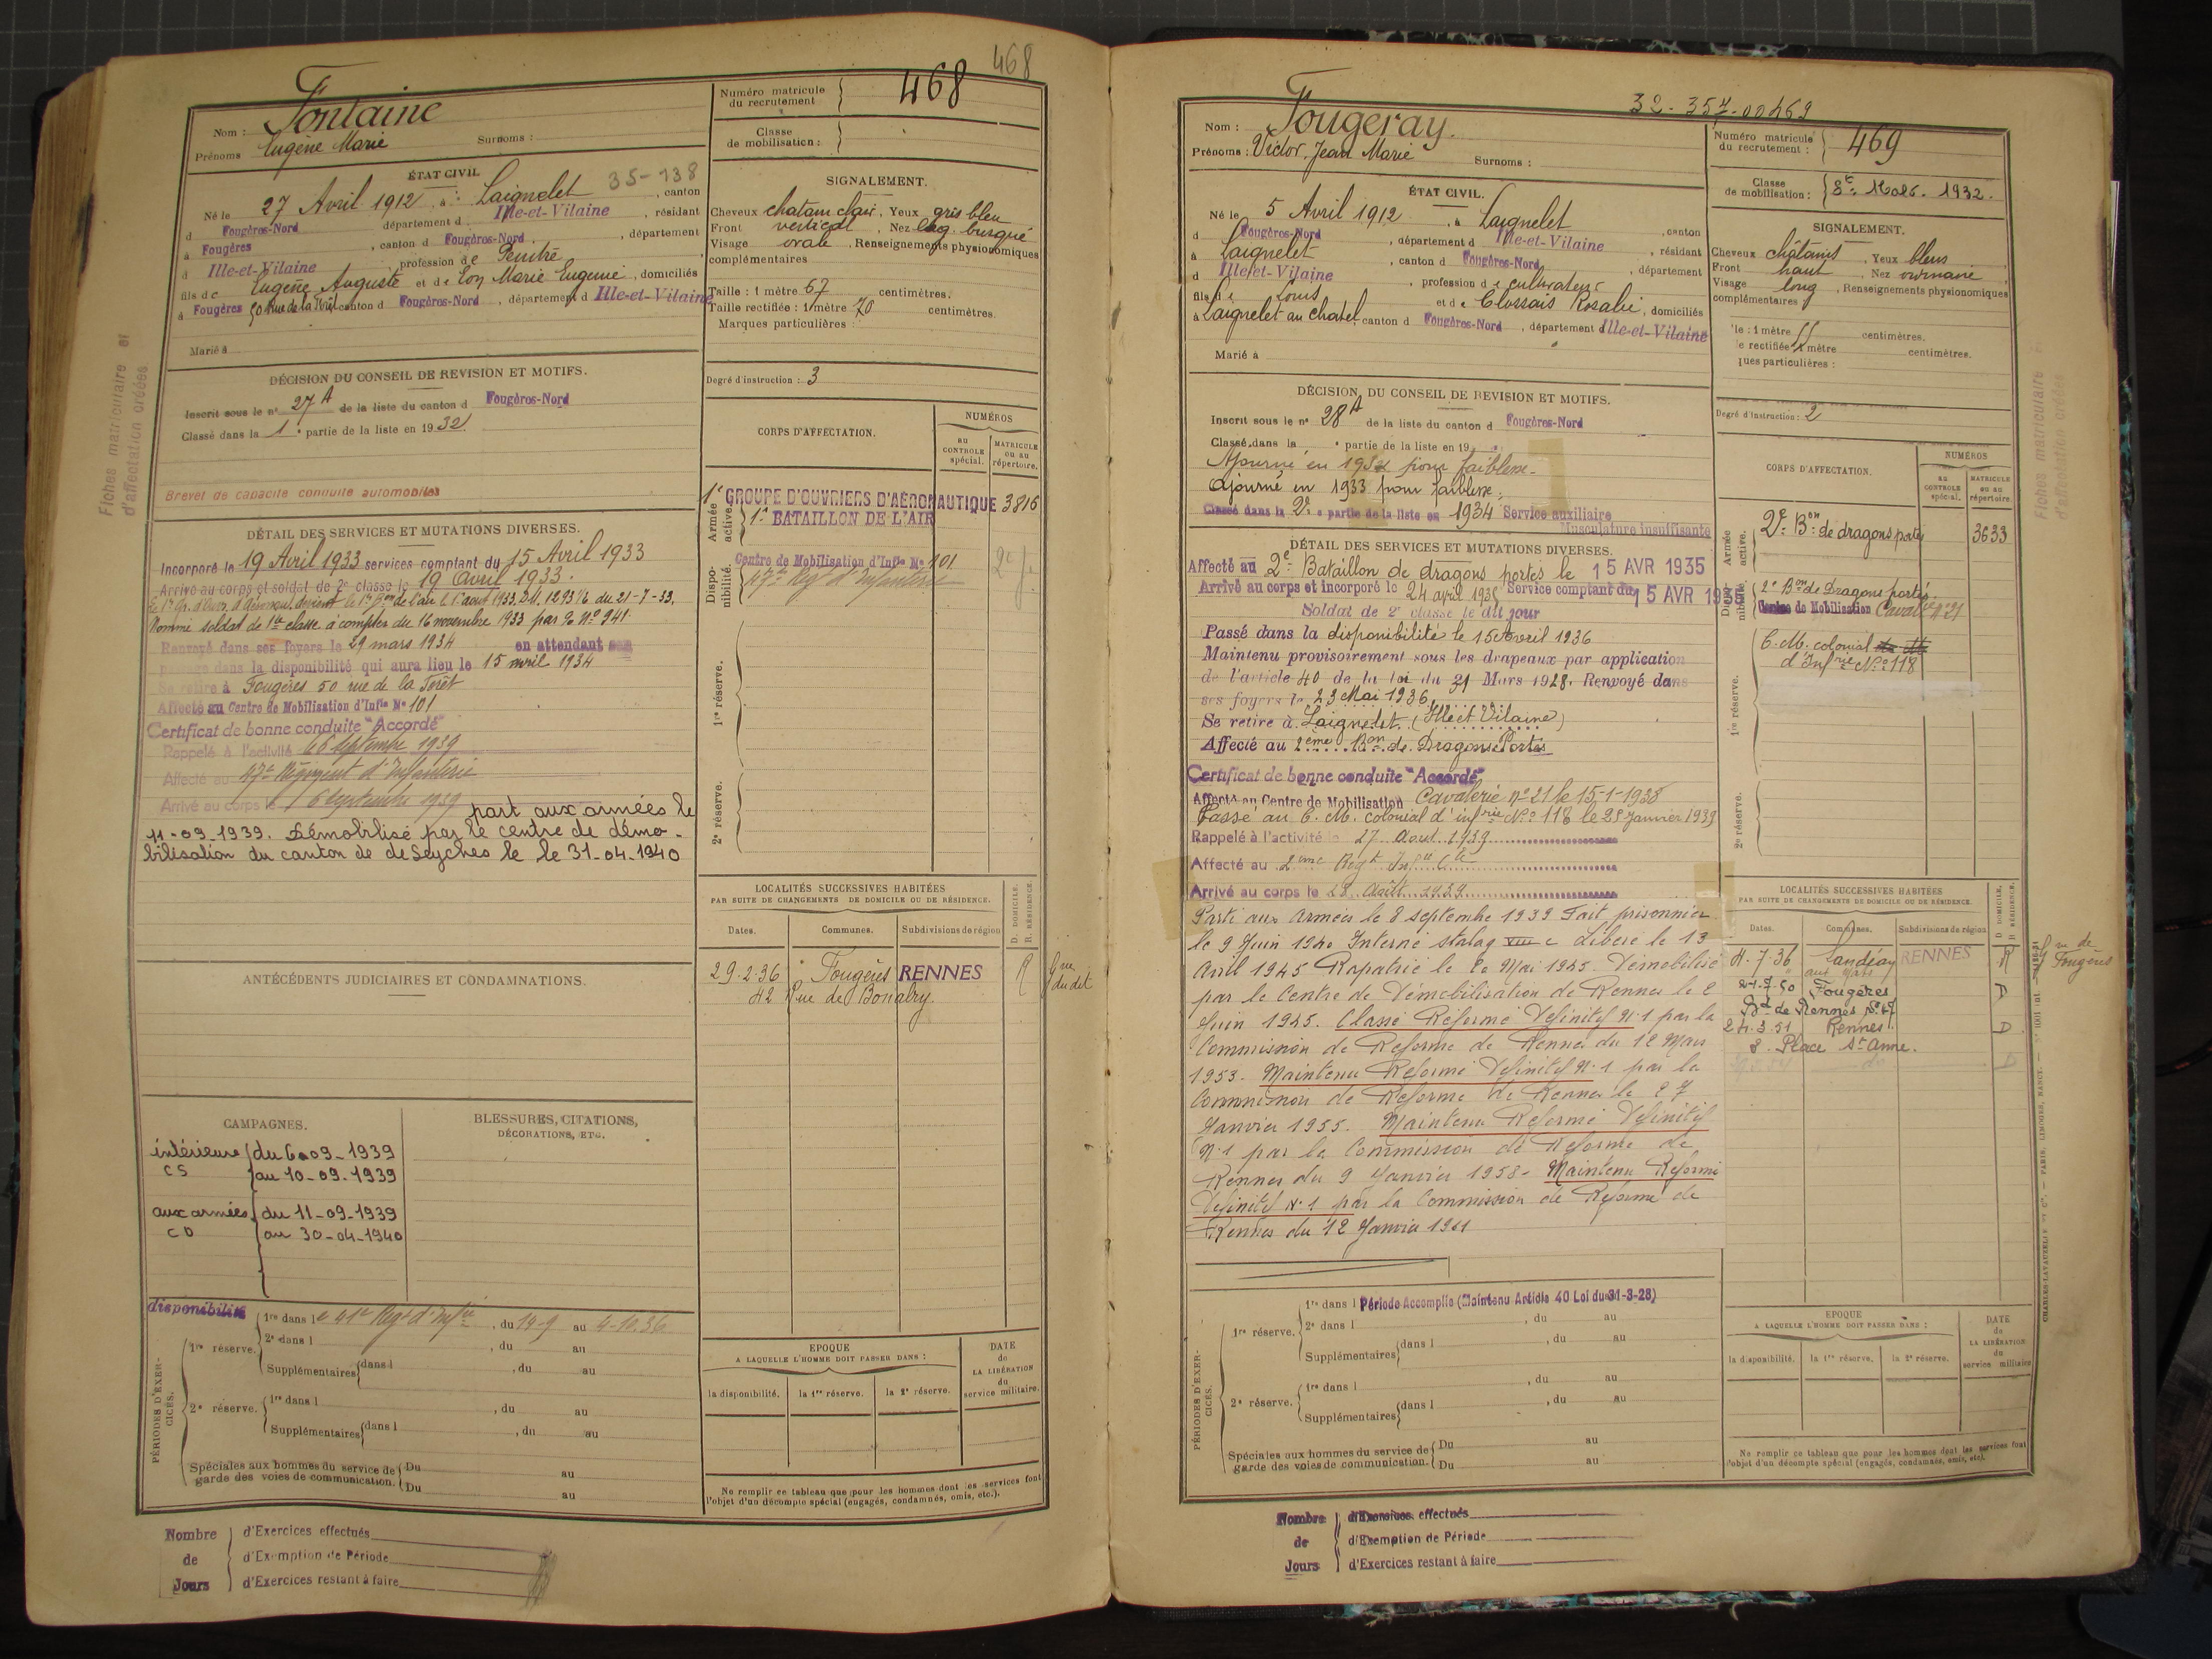 468
Fontaine
Nom :
Prénoms Eugène Marie Surnoms :
Numéro matricule du recrutement } 468
Classe de mobilisation : }
ÉTAT CIVIL. 35-138
Né le 27 Avril 1912, à Laignelet, canton
d Fougères-Nord département d Ille-et-Vilaine, résidant
à Fougères, canton d Fougères-Nord, département
d Ille-et-Vilaine profession de Peintre
fils de Eugène Auguste et de Eon Marie Eugenie, domiciliés
à Fougères 50 Rue de la Forêt canton d Fougères-Nord, département d Ille-et-Vilaine
Marié à
SIGNALEMENT.
Cheveux chatain clair, Yeux gris bleu
Front vertical, Nez busqué
Visage ovale, Renseignements physionomiques
complémentaires
Taille : 1 mètre 67 centimètres.
Taille rectifiée : 1 mètre 70 centimètres.
Marques particulières :
Degré d'instruction : 3
DÉCISION DU CONSEIL DE REVISION ET MOTIFS.
Inscrit sous le n° 27 A de la liste du canton d Fougères-Nord
Classé dans la 1e partie de la liste en 1932
Brevet de capacité conduite automobiles
Fiches matriculaire et
d'affectation créées
CORPS D'AFFECTATION.
NUMÉROS
AU CONTROLE spécial.
MATRICULE OU AU répertoire.
Armée active.
1e GROUPE D'OUVRIERS D'AÉRONAUTIQUE 3816
1e BATAILLON DE L'AIR
Disponibilité.
Centre de Mobilisation d'Infie No 101
47e Regt d'Infanterie
1re réserve.
2e réserve.
DÉTAIL DES SERVICES ET MUTATIONS DIVERSES.
Incorporé le 19 Avril 1933 services comptant du 15 Avril 1933
Arrivé au corps et soldat de 2e classe le 19 avril 1933.
Le 1er Gr. d'Ouvr. d'Aéronau. devient le 1er Bon de l'air le 1er aout 1933, D.M. 1293 1/6 du 21-7-33.
Nommé soldat de 1ère classe à compter du 16 novembre 1933 par % No 941.
Renvoyé dans ses foyers le 29 mars 1934 en attendant son
passage dans la disponibilité qui aura lieu le 15 avril 1934
Se retire à Fougères 50 rue de la Forêt
Affecté au Centre de Mobilisation d'Infie No 101
Certificat de bonne conduite "Accordé"
Rappelé à l'activité le 6 septembre 1939
Affecté au 47e Régiment d'Infanterie
Arrivé au corps le 6 septembre 1939 part aux armées le
11-09-1939. Démobilisé par le centre de démo-
bilisation du canton de de Seyches le le 31-04-1940
ANTÉCÉDENTS JUDICIAIRES ET CONDAMNATIONS.
LOCALITÉS SUCCESSIVES HABITÉES
PAR SUITE DE CHANGEMENTS DE DOMICILE OU DE RÉSIDENCE.
Dates. Communes. Subdivisions de région D. DOMICILE. R. RÉSIDENCE.
29.2.36 Fougères RENNES R
42 Rue de Bonabry
CAMPAGNES.
intérieure { du 6-09-1939
CS } au 10-09-1939
aux armées { du 11-09-1939
CD au 30-04-1940
BLESSURES, CITATIONS,
DÉCORATIONS, ETC.
disponibilité
PÉRIODES D'EXERCICES.
1re réserve. 1re dans le 41e Regt d'Infie, du 14-9 au 4-10.36
2e dans l , du au
Supplémentaires { dans l , du au
2e réserve. 1re dans l , du au
Supplémentaires { dans l , du au
Spéciales aux hommes du service de garde des voies de communication. { Du au
Du au
EPOQUE
A LAQUELLE L'HOMME DOIT PASSER DANS :
la disponibilité. la 1re réserve. la 2e réserve.
DATE de LA LIBÉRATION du service militaire.
Ne remplir ce tableau que pour les hommes dont les services font
l'objet d'un décompte spécial (engagés, condamnés, omis, etc.).
Nombre de Jours
d'Exercices effectués
d'Exemption de Période
d'Exercices restant à faire
32-357-00469
Fougeray.
Nom :
Prénoms : Victor, Jean Marie Surnoms :
Numéro matricule du recrutement : } 469
Classe de mobilisation : 1932.
ÉTAT CIVIL.
Né le 5 Avril 1912, à Laignelet, canton
d Fougères-Nord, département d Ille-et-Vilaine, résidant
à Laignelet, canton d Fougères-Nord, département
d Ille-et-Vilaine, profession de cultivateur
fils de Louis et de Clossais Rosalie, domiciliés
à Laignelet au Chatel canton d Fougères-Nord, département d Ille-et-Vilaine
Marié à
SIGNALEMENT.
Cheveux châtains, Yeux bleus
Front haut, Nez ordinaire
Visage long, Renseignements physionomiques
complémentaires
le : 1 mètre centimètres.
e rectifiée 1 mètre centimètres.
ques particulières :
Degré d'instruction : 2
DÉCISION DU CONSEIL DE REVISION ET MOTIFS.
Inscrit sous le n° 28 A de la liste du canton d Fougères-Nord
Classé dans la e partie de la liste en 19
Ajourné en 1932 pour faiblesse.
Ajourné en 1933 pour faiblesse.
Classé dans la 2e partie de la liste en 1934 Service auxiliaire
Musculature insuffisante
CORPS D'AFFECTATION.
NUMÉROS
AU CONTROLE spécial.
MATRICULE OU AU répertoire.
Armée active.
2e Bon de dragons portés 3633
Disponibilité.
2e Bon de Dragons portés.
Centre de Mobilisation Cavalerie n° 21
C. M. colonial
d'Infrie No 118
1re réserve.
2e réserve.
Fiches matriculaire et
d'affectation créées
DÉTAIL DES SERVICES ET MUTATIONS DIVERSES.
Affecté au 2e Bataillon de dragons portés le 15 AVR 1935
Arrivé au corps et incorporé le 24 avril 1935 Service comptant du 15 AVR 1935
Soldat de 2e classe le dit jour
Passé dans la disponibilité le 15 Avril 1936
Maintenu provisoirement sous les drapeaux par application
de l'article 40 de la loi du 31 Mars 1928. Renvoyé dans
ses foyers le 23 Mai 1936
Se retire à Laignelet (Ille et Vilaine)
Affecté au 2ème Bon de Dragons Portés
Certificat de bonne conduite "Accordé"
Affecté au Centre de Mobilisation Cavalerie no 21 le 15-1-1938
Passé au C. M. colonial d'infrie No 118 le 25 Janvier 1939
Rappelé à l'activité le 27 Aout 1939
Affecté au 2ème Regt Infie Cle
Arrivé au corps le 28 Août 1939
Parti aux Armées le 8 septembre 1939 Fait prisonnier
le 9 Juin 1940 Interné stalag VIII c Libéré le 13
Avril 1945 Rapatrié le 2 Mai 1945. Démobilisé
par le Centre de Démobilisation de Rennes le 2
Juin 1945. Classé Réformé Définitif N°1 par la
Commission de Réforme de Rennes du 12 Mars
1953. Maintenu Réformé Définitif N°1 par la
Commission de Réforme de Rennes le 27
Janvier 1955. Maintenu Réformé Définitif
N°1 par la Commission de Réforme de
Rennes du 9 Janvier 1958. Maintenu Réformé
Définitif N°1 par la Commission de Réforme de
Rennes du 12 Janvier 1961
LOCALITÉS SUCCESSIVES HABITÉES
PAR SUITE DE CHANGEMENTS DE DOMICILE OU DE RÉSIDENCE.
Dates. Communes. Subdivisions de région D. DOMICILE. R. RÉSIDENCE.
4.7.36 Landéan RENNES R
Fougères D
Bd de Rennes
24.3.51 Rennes D
8 Place Ste Anne.
D
PÉRIODES D'EXERCICES.
1re réserve. 1re dans l Période Accomplie (Maintenu Article 40 Loi du 31-3-28)
2e dans l , du au
Supplémentaires { dans l , du au
2e réserve. 1re dans l , du au
Supplémentaires { dans l , du au
Spéciales aux hommes du service de garde des voies de communication. { Du au
Du au
EPOQUE
A LAQUELLE L'HOMME DOIT PASSER DANS :
la disponibilité. la 1re réserve. la 2e réserve.
DATE de LA LIBÉRATION du service militaire
Ne remplir ce tableau que pour les hommes dont les services font
l'objet d'un décompte spécial (engagés, condamnés, omis, etc.).
Nombre de Jours
d'Exercices effectués
d'Exemption de Période
d'Exercices restant à faire